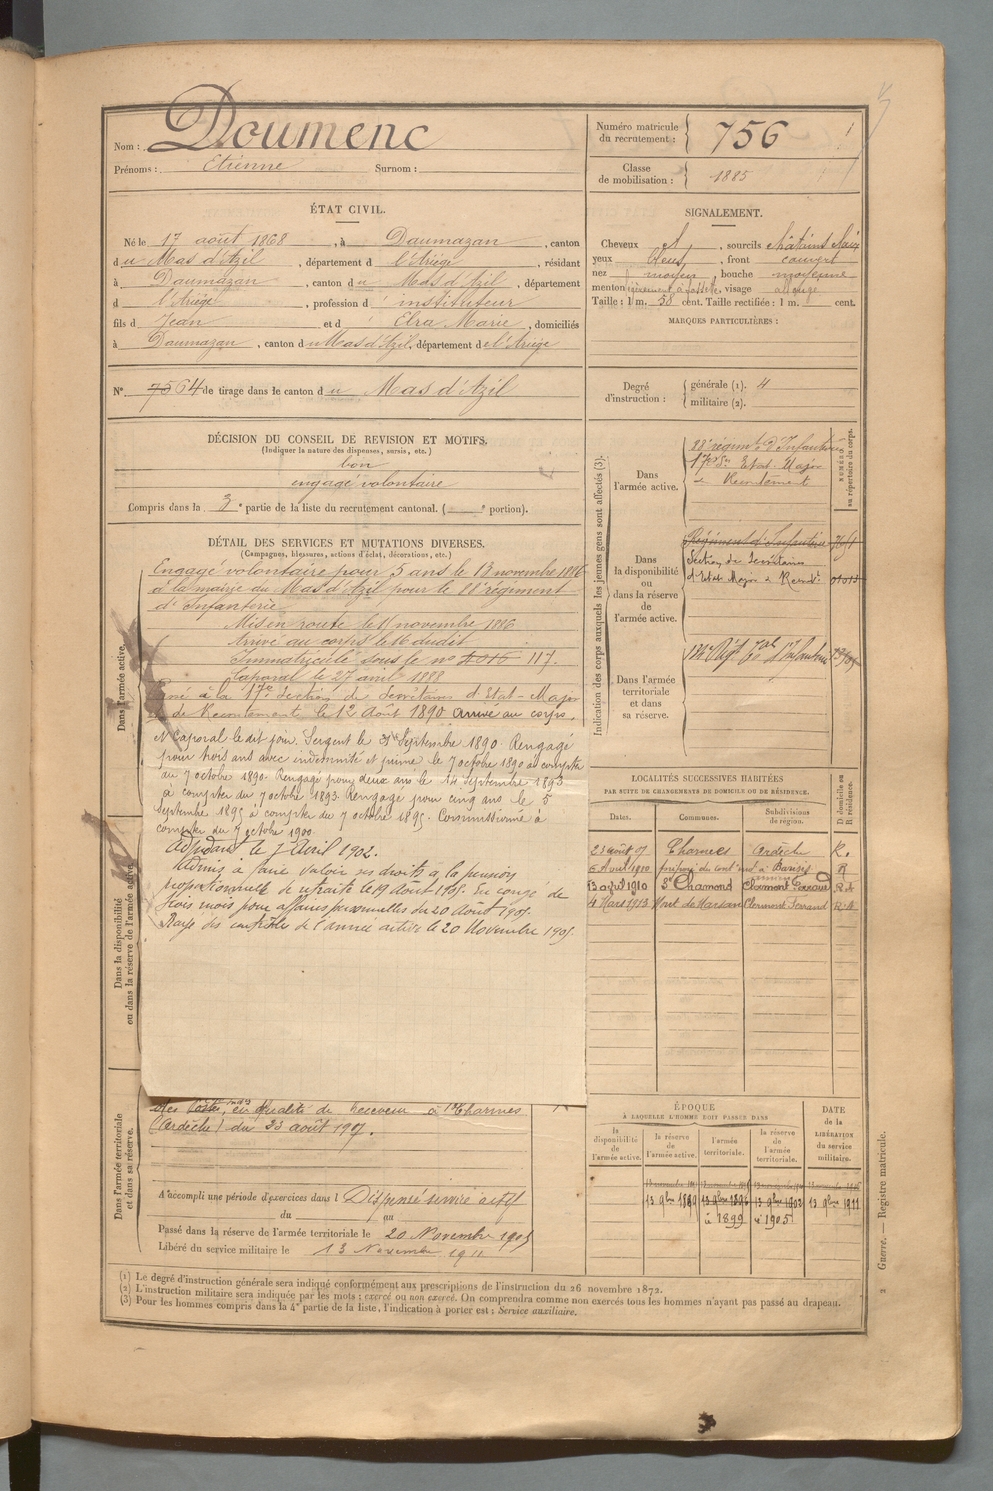 Nom : Doumenc
Prénoms : Etienne Surnom :
Numéro matricule du recrutement : 756
Classe de mobilisation : 1885
ÉTAT CIVIL.
Né le 17 août 1868, à Daumazan, canton
du Mas d'Azil, département d l'Ariège, résidant
à Daumazan, canton du Mas d'Azil, département
d l'Ariège, profession d instituteur
fils d Jean et d Elra Marie, domiciliés
à Daumazan, canton du Mas d'Azil, département de l'Ariège
N° 64 de tirage dans le canton du Mas d'Azil
SIGNALEMENT.
Cheveux , sourcils châtains
yeux bleus, front couvert
nez moyen, bouche moyenne
menton à fossette, visage allongé
Taille : 1 m. 58 cent. Taille rectifiée : 1 m. cent.
MARQUES PARTICULIÈRES :
Degré d'instruction : générale (1). 4
militaire (2).
DÉCISION DU CONSEIL DE REVISION ET MOTIFS.
(Indiquer la nature des dispenses, sursis, etc.)
bon
engagé volontaire
Compris dans la 3e partie de la liste du recrutement cantonal. ( e portion).
DÉTAIL DES SERVICES ET MUTATIONS DIVERSES.
(Campagnes, blessures, actions d'éclat, décorations, etc.)
Dans l'armée active.
Engagé volontaire pour 5 ans le 13 novembre 1886
à la mairie du Mas d'Azil pour le 88e régiment
d'Infanterie
Mis en route le 11 novembre 1886
Arrivé au corps le 16 dudit
Immatriculé sous le no 4016 117.
Caporal le 27 avril 1888
Passé à la 17e Section de Secrétaires d'Etat-Major
& de Recrutement le 12 Août 1890 arrivé au corps,
et Caporal le dit jour. Sergent le Septembre 1890. Rengagé
pour trois ans avec indemnité et prime le 7 octobre 1890 à compter
du 7 octobre 1890. Rengagé pour deux ans le 14 Septembre 1893
à compter du 7 octobre 1893. Rengagé pour cinq ans le 5
Septembre 1895 à compter du 7 octobre 1895. Commissionné à
compter du 7 octobre 1900.
Adjudant le 7 Avril 1902.
Admis à faire valoir ses droits à la pension
proportionnelle de retraite le 19 Août 1905. En congé de
trois mois pour affaires personnelles du 20 Août 1905.
Rayé des contrôles de l'armée active le 20 Novembre 1905
Dans la disponibilité ou dans la réserve de l'armée active.
Dans l'armée territoriale et dans sa réserve.
des Postes, en qualité de Receveur à Charmes
(Ardèche) du 23 août 1907.
A accompli une période d'exercices dans l Dispensé service actif
du au
Passé dans la réserve de l'armée territoriale le 20 Novembre 1905
Libéré du service militaire le 13 Novembre 1911
Indication des corps auxquels les jeunes gens sont affectés (3).
NUMÉRO au répertoire du corps.
Dans l'armée active.
88e régiment d'Infanterie
17e Son Etat-Major
& Recrutement
Dans la disponibilité ou dans la réserve de l'armée active.
Régiment d'Infanterie
Section de Secrétaires
d'Etat Major & Recrut.
Dans l'armée territoriale et dans sa réserve.
LOCALITÉS SUCCESSIVES HABITÉES
PAR SUITE DE CHANGEMENTS DE DOMICILE OU DE RÉSIDENCE.
Dates. Communes. Subdivisions de région. D domicile ou R résidence.
23 août 07 Charmes Ardèche R.
5 Avril 1910
13 avril 1910 St Chamond Clermont Ferrand
4 Mars 1913 Mont de Marsan Clermont Ferrand
ÉPOQUE
À LAQUELLE L'HOMME DOIT PASSER DANS
DATE de la LIBÉRATION du service militaire.
la disponibilité de l'armée active. la réserve de l'armée active. l'armée territoriale. la réserve de l'armée territoriale.
13 9bre 1889 13 9bre 1896 13 9bre 1902 13 9bre 1911
à 1899 à 1905
(1) Le degré d'instruction générale sera indiqué conformément aux prescriptions de l'instruction du 26 novembre 1872.
(2) L'instruction militaire sera indiquée par les mots : exercé ou non exercé. On comprendra comme non exercés tous les hommes n'ayant pas passé au drapeau.
(3) Pour les hommes compris dans la 4e partie de la liste, l'indication à porter est : Service auxiliaire.
Guerre. — Registre matricule.
2